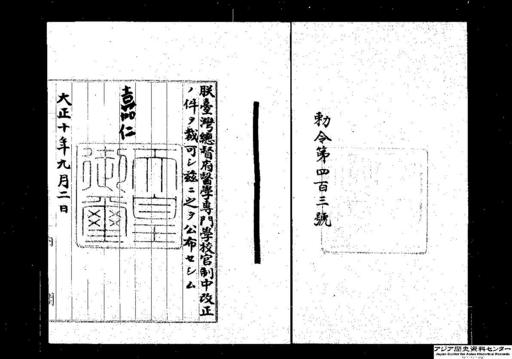 勅令第四百三號
朕臺灣總督府醫學專門學校官制中改正
ノ件ヲ裁可シ茲ニ之ヲ公布セシム
嘉仁
天皇御璽
大正十年九月二日
内閣
アジア歴史資料センター
Japan Center for Asian Historical Records